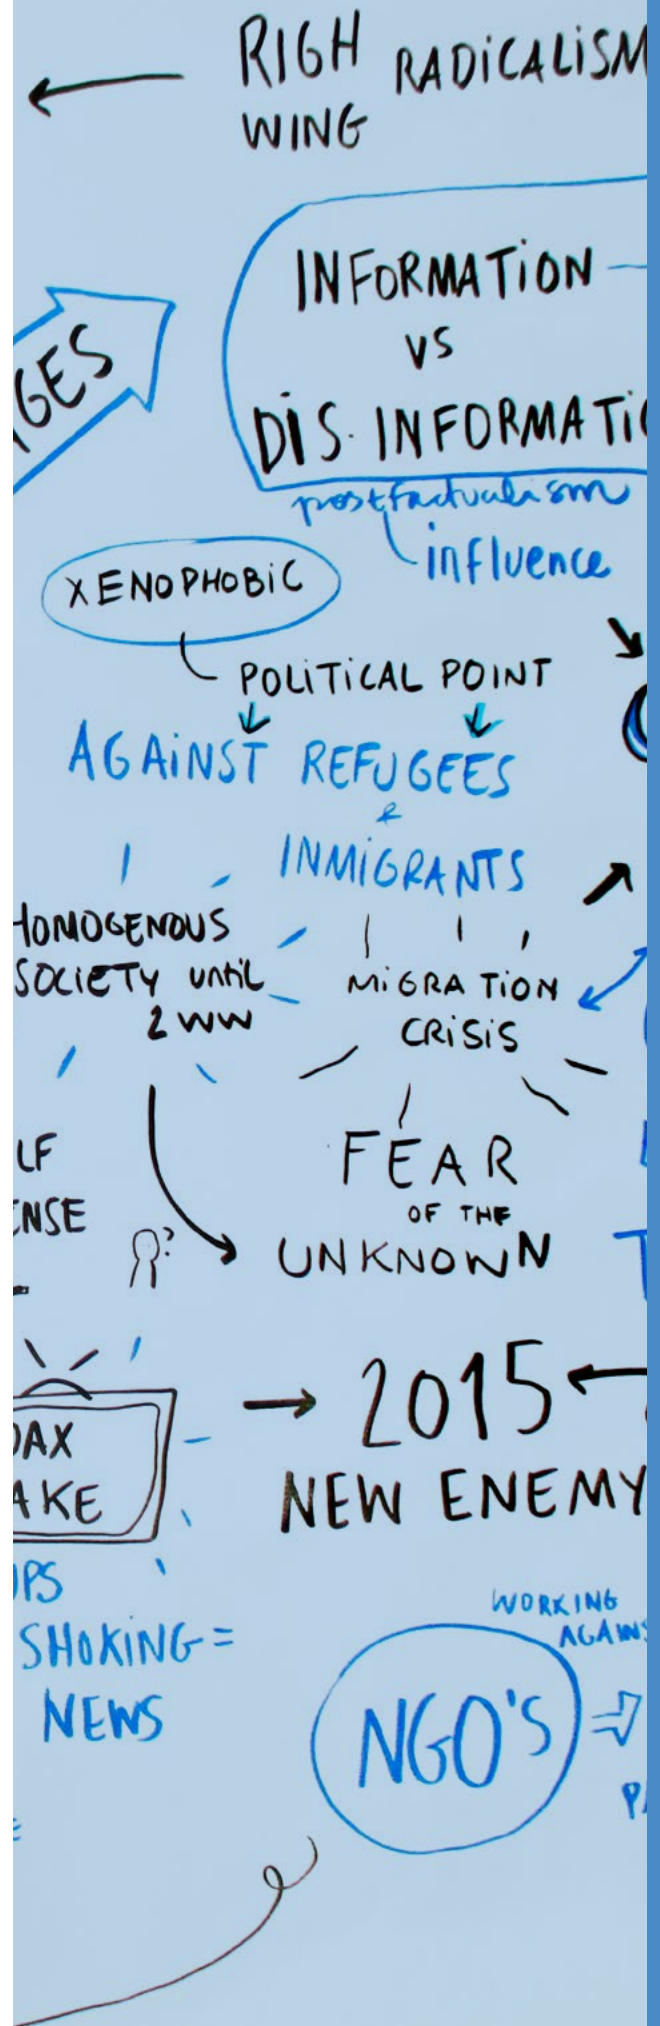 RIGH RADICALISM
WING
INFORMATION
VS
DIS. INFORMATIO
GES
postfactualism
influence
XENOPHOBIC
POLITICAL POINT
AGAINST REFUGEES
&
INMIGRANTS
HOMOGENOUS
SOCIETY until
2 WW
MIGRATION
CRISIS
LF
ENSE
FEAR
OF THE
UNKNOWN
?
2015
NEW ENEMY
OAX
AKE
UPS
SHOKING =
NEWS
WORKING
AGAINS
NGO'S
PA